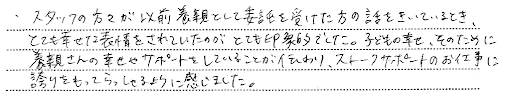 ・スタッフの方々が以前養親として委託を受けた方の話をきいているとき、
とても幸せな表情をされていたのがとても印象的でした。子どもの幸せ、そのために
養親さんの幸せやサポートをしていることが伝わり、ストークサポートのお仕事に
誇りをもってらっしゃるように感じました。